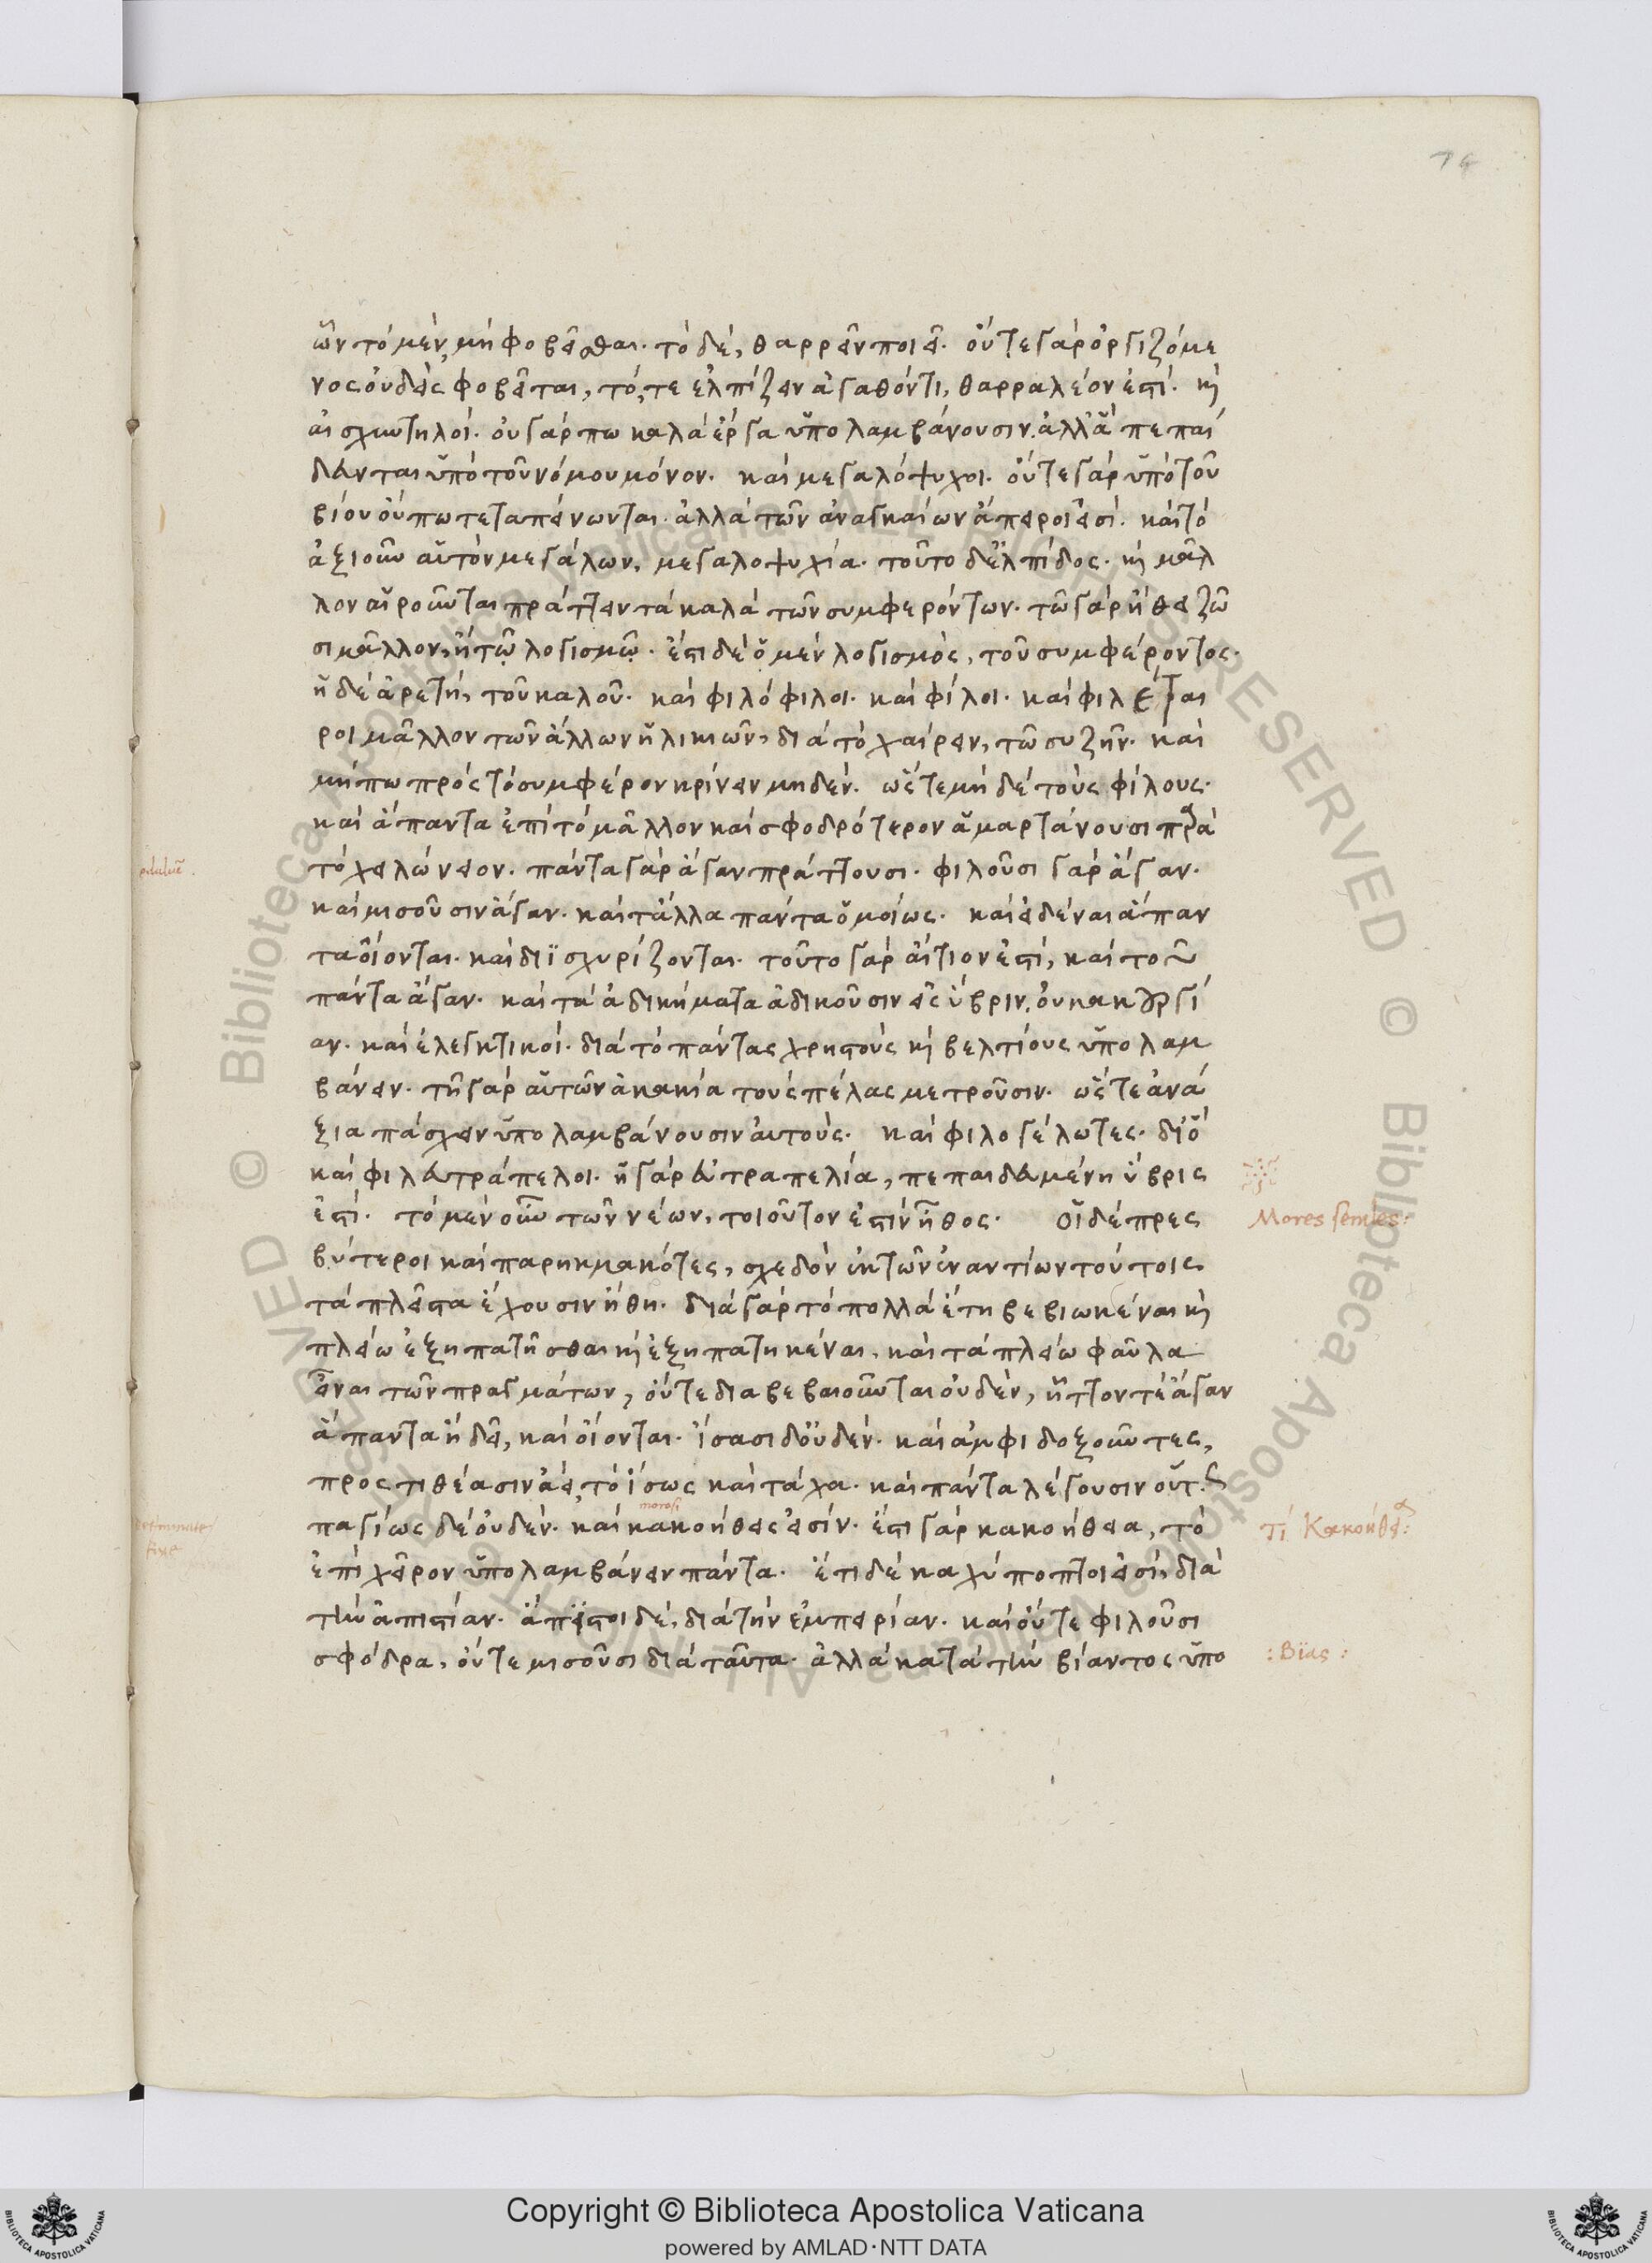 74
ὧν τὸ μὲν, μὴ φοβεῖσθαι· τὸ δὲ, θαρρεῖν ποιεῖ· οὔτε γὰρ ὀργιζόμε
νος οὐδεὶς φοβεῖται, τό, τε ἐλπίζειν ἀγαθόν τι, θαρραλέον ἐστί· καὶ
αἰσχυντηλοί· οὐ γάρ πω καλὰ ἔργα ὑπολαμβάνουσιν. ἀλλὰ πεπαί
δευνται ὑπὸ τοῦ νόμου μόνον· καὶ μεγαλόψυχοι· οὔτε γὰρ ὑπὸ τοῦ
βίου οὔπω τεταπείνωνται· ἀλλὰ τῶν ἀναγκαίων ἄπειροί εἰσι· καὶ τὸ
ἀξιοῦν αὑτὸν μεγάλων, μεγαλοψυχία· τοῦτο δ' ἐλπίδος· καὶ μᾶλ
λον αἱροῦνται πράττειν τὰ καλὰ τῶν συμφερόντων· τῷ γὰρ ἤθει ζῶ
σι μᾶλλον, ἢ τῷ λογισμῷ· ἔστι δὲ ὁ μὲν λογισμὸς, τοῦ συμφέροντος·
ἡ δὲ ἀρετὴ, τοῦ καλοῦ· καὶ φιλόφιλοι· καὶ φίλοι· καὶ φιλέται
ροι μᾶλλον τῶν ἄλλων ἡλικιῶν, διὰ τὸ χαίρειν, τῷ συζῆν· καὶ
μήπω πρὸς τὸ συμφέρον κρίνειν μηδέν· ὥστε μὴ δὲ τοὺς φίλους·
καὶ ἅπαντα ἐπὶ τὸ μᾶλλον καὶ σφοδρότερον ἁμαρτάνουσι παρὰ
τὸ χειλώνειον· πάντα γὰρ ἄγαν πράττουσι· φιλοῦσι γὰρ ἄγαν·
καὶ μισοῦσιν ἄγαν· καὶ τἄλλα πάντα ὁμοίως· καὶ εἰδέναι ἅπαν
τα οἴονται· καὶ διϊσχυρίζονται· τοῦτο γὰρ αἴτιον ἐστί, καὶ τοῦ
πάντα ἄγαν· καὶ τὰ ἀδικήματα ἀδικοῦσιν εἰς ὕβριν, οὐ κακουργί
αν· καὶ ἐλεητικοί· διὰ τὸ πάντας χρηστοὺς καὶ βελτίους ὑπολαμ
βάνειν· τῇ γὰρ αὑτῶν ἀκακία τοὺς πέλας μετροῦσιν· ὥστε ἀνά
ξια πάσχειν ὑπολαμβάνουσιν αὐτούς· καὶ φιλογέλωτες· διὸ
καὶ φιλευτράπελοι· ἡ γὰρ εὐτραπελία, πεπαιδευμένη ὕβρις
ἐστί· τὸ μὲν οὖν τῶν νέων, τοιοῦτον ἐστὶν ἦθος· οἱ δὲ πρες
Mores senies:
βύτεροι καὶ παρηκμακότες, σχεδὸν ἐκ τῶν ἐναντίων τούτοις
τὰ πλεῖστα ἔχουσιν ἤθη· διὰ γὰρ τὸ πολλὰ ἔτη βεβιωκέναι καὶ
πλείω ἐξηπατῆσθαι καὶ ἐξηπατηκέναι, καὶ τὰ πλείω φαῦλα
εἶναι τῶν πραγμάτων, οὔτε διαβεβαιοῦνται οὐδὲν, ἧττόν τε ἄγαν
ἅπαντα ἢ δεῖ, καὶ οἴονται· ἴσασι δ' οὐδέν· καὶ ἀμφιδοξοῦντες,
προστιθέασιν ἀεὶ, τὸ ἴσως καὶ τάχα· καὶ πάντα λέγουσιν οὕτως
παγίως δὲ οὐδέν· καὶ κακοήθεις εἰσίν· ἔστι γὰρ κακοήθεια, τὸ
morosi
τί κακοήθεια:
ἐπὶ χεῖρον ὑπολαμβάνειν πάντα· ἔτι δὲ καχύποπτοί εἰσι, διὰ
τὴν ἀπιστίαν· ἄπιστοι δὲ, διὰ τὴν ἐμπειρίαν· καὶ οὔτε φιλοῦσι
σφόδρα, οὔτε μισοῦσι διὰ ταῦτα· ἀλλὰ κατὰ τὴν βίαντος ὑπο
: Βίας :